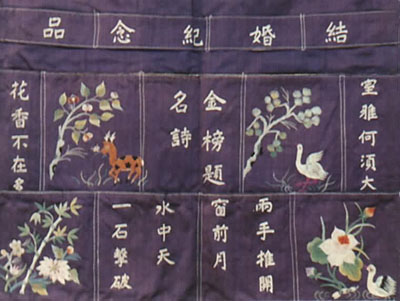 結婚紀念品
室雅何須大
金榜題
名詩
花香不在
兩手推開
窗前月
一石擊破
水中天